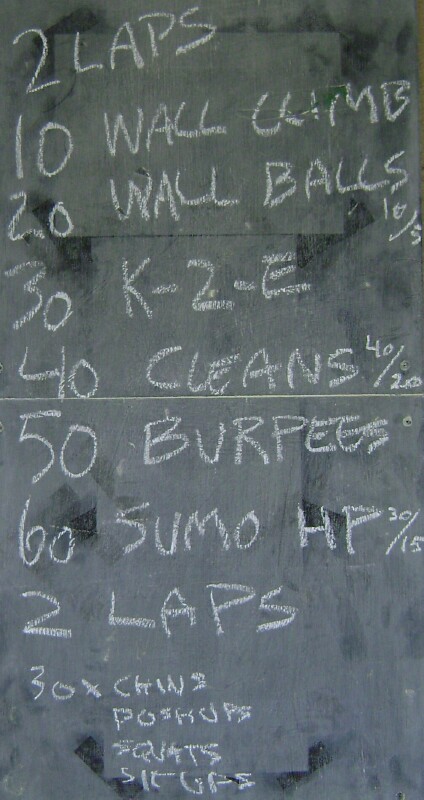 2 LAPS
10 WALL CLIMB
20 WALL BALLS 10/5
30 K-2-E
40 CLEANS 40/20
50 BURPEES
60 SUMO HP 30/15
2 LAPS
30x CHINS
POSHUPS
SQUATS
SIT-UPS